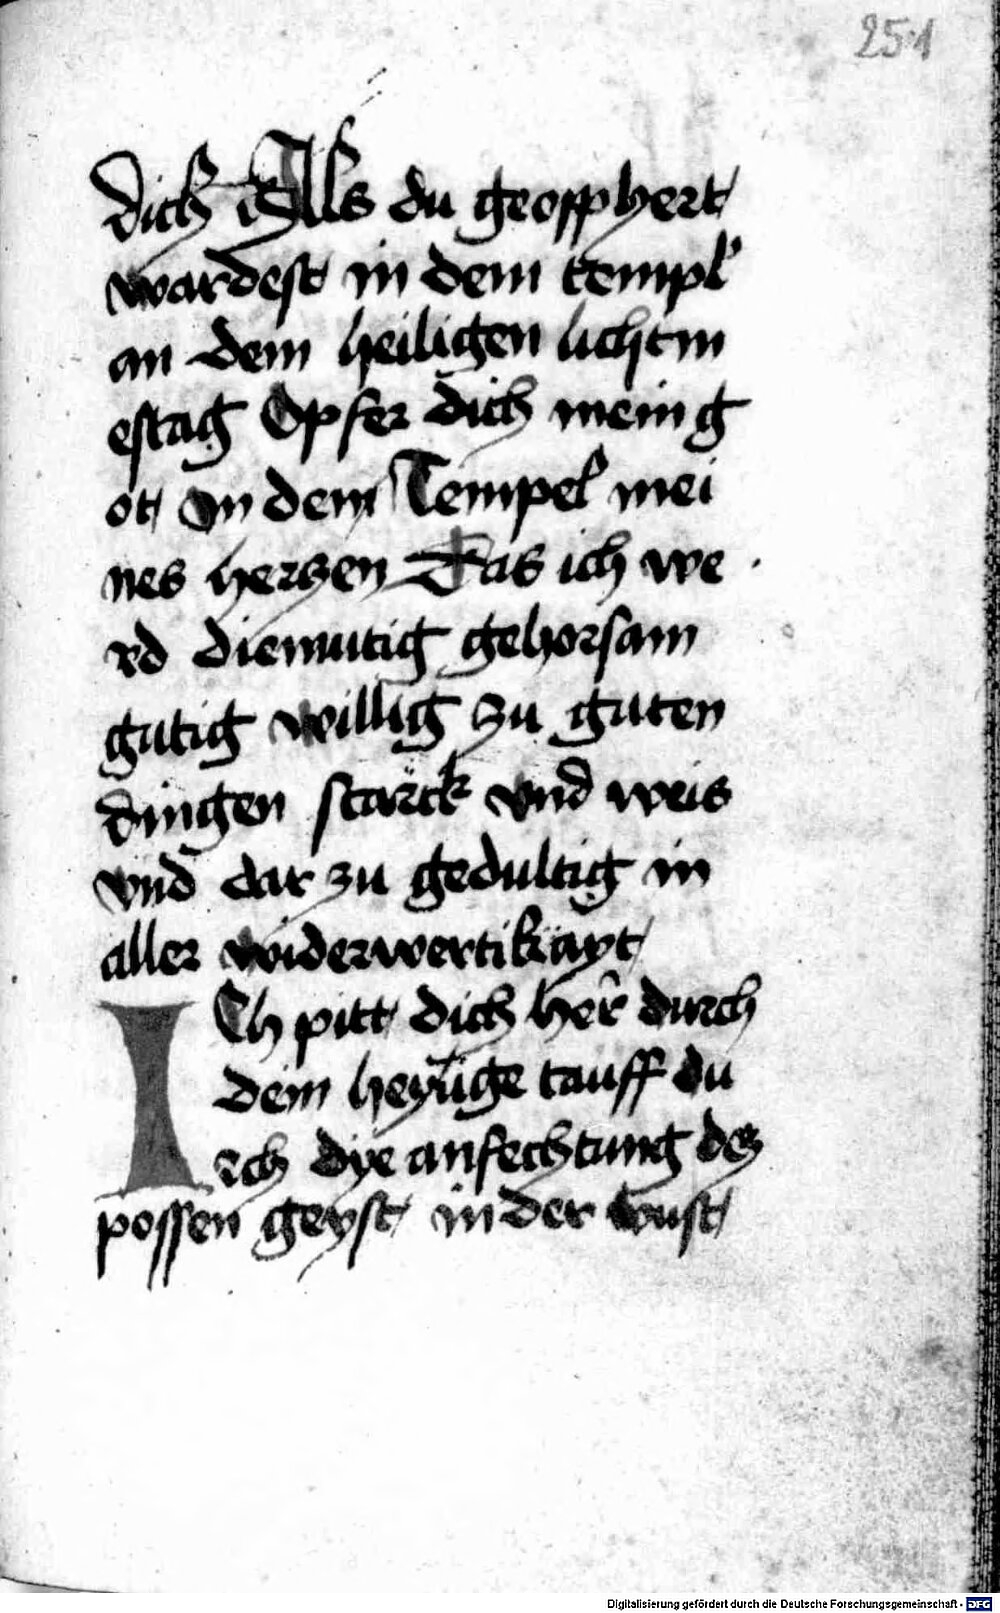 251
dich Als du geopphert
wardest in dem templ
an dem heiligen lichtm
estag Opfer dich mein g
ot In dem Tempel mei
nes herzen Das ich we
rd diemutig gehorsam
gutig willig zu guten
dingen starck vnd weis
vnd dar zu gedultig in
aller widerwertikayt
ICh pitt dich her durch
dein heylige tauff du
rch dye anfechtung dez
possen geyst in der wust
Digitalisierung gefördert durch die Deutsche Forschungsgemeinschaft - DFG